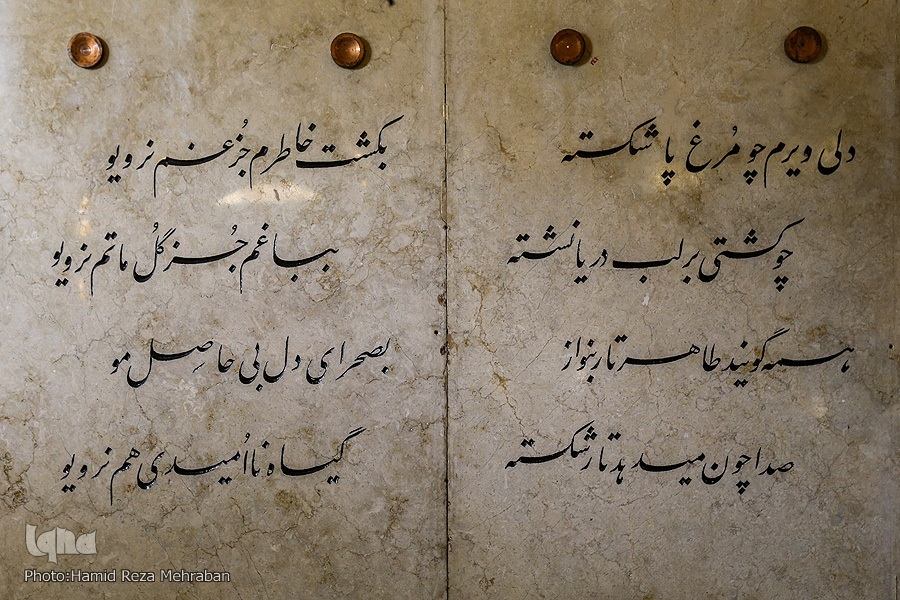 دلی دیرم چو مُرغ پا شکسته
چو کشتی بر لب دریا نشسته
همه گویند طاهر تار بنواز
صدا چون میدهد تار شکسته
بکشت خاطرم جُز غم نرویو
بباغم جُز گُل ماتم نرویو
بصحرای دل بی حاصِل مو
گیاه نااُمیدی هم نرویو
Iqna
Photo:Hamid Reza Mehraban